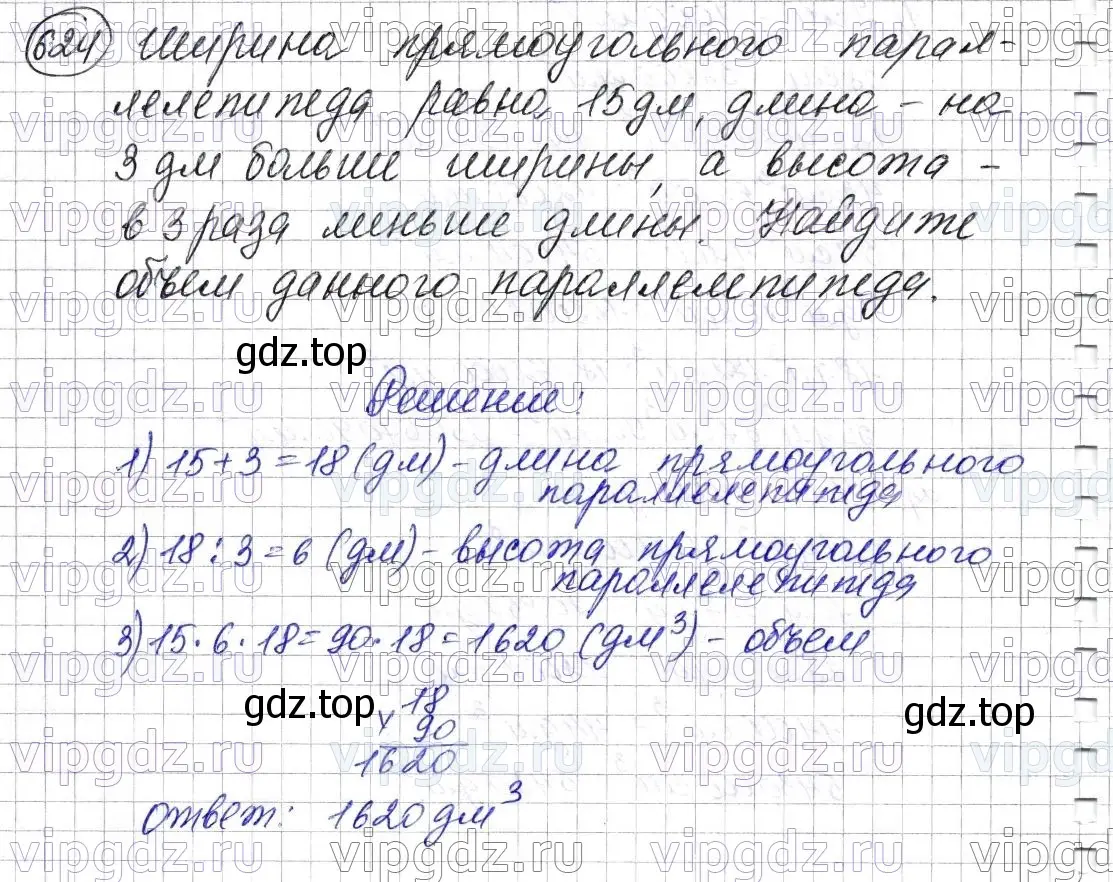 624 Ширина прямоугольного парал-
лелепипеда равна 15 дм, длина - на
3 дм больше ширины, а высота -
в 3 раза меньше длины. Найдите
объем данного параллелепипеда.
gdz.top
Решение:
1) 15+3=18 (дм) - длина прямоугольного
параллелепипеда
2) 18:3=6 (дм) - высота прямоугольного
параллелепипеда
3) 15·6·18=90·18=1620 (дм³) - объем
gdz.top
gdz.top
×18
90
1620
ответ: 1620 дм³
vipgdz.ru